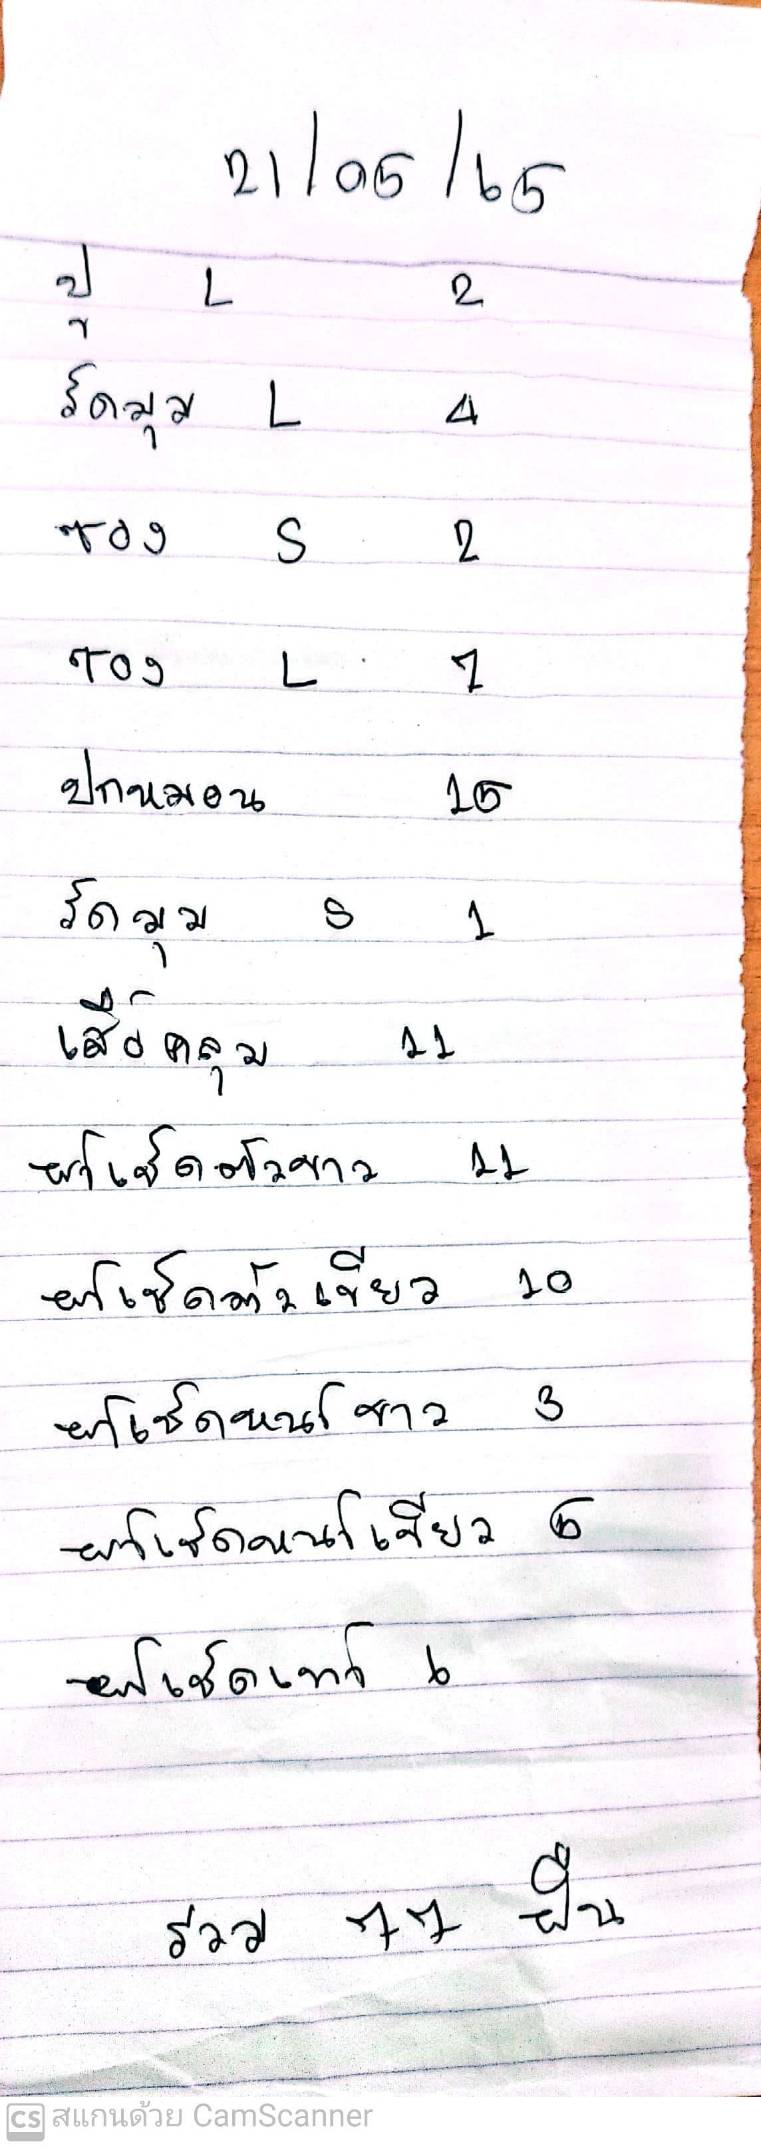 21/05/65
ปู L 2
รัดมุม L 4
ซอง S 2
ซอง L 7
ปกหมอน 15
รัดมุม S 1
เสื้อคลุม 11
ผ้าเช็ดตัวขาว 11
ผ้าเช็ดตัวเขียว 10
ผ้าเช็ดหน้าขาว 3
ผ้าเช็ดหน้าเขียว 5
ผ้าเช็ดเท้า 6
รวม 77 ผืน
CS สแกนด้วย CamScanner